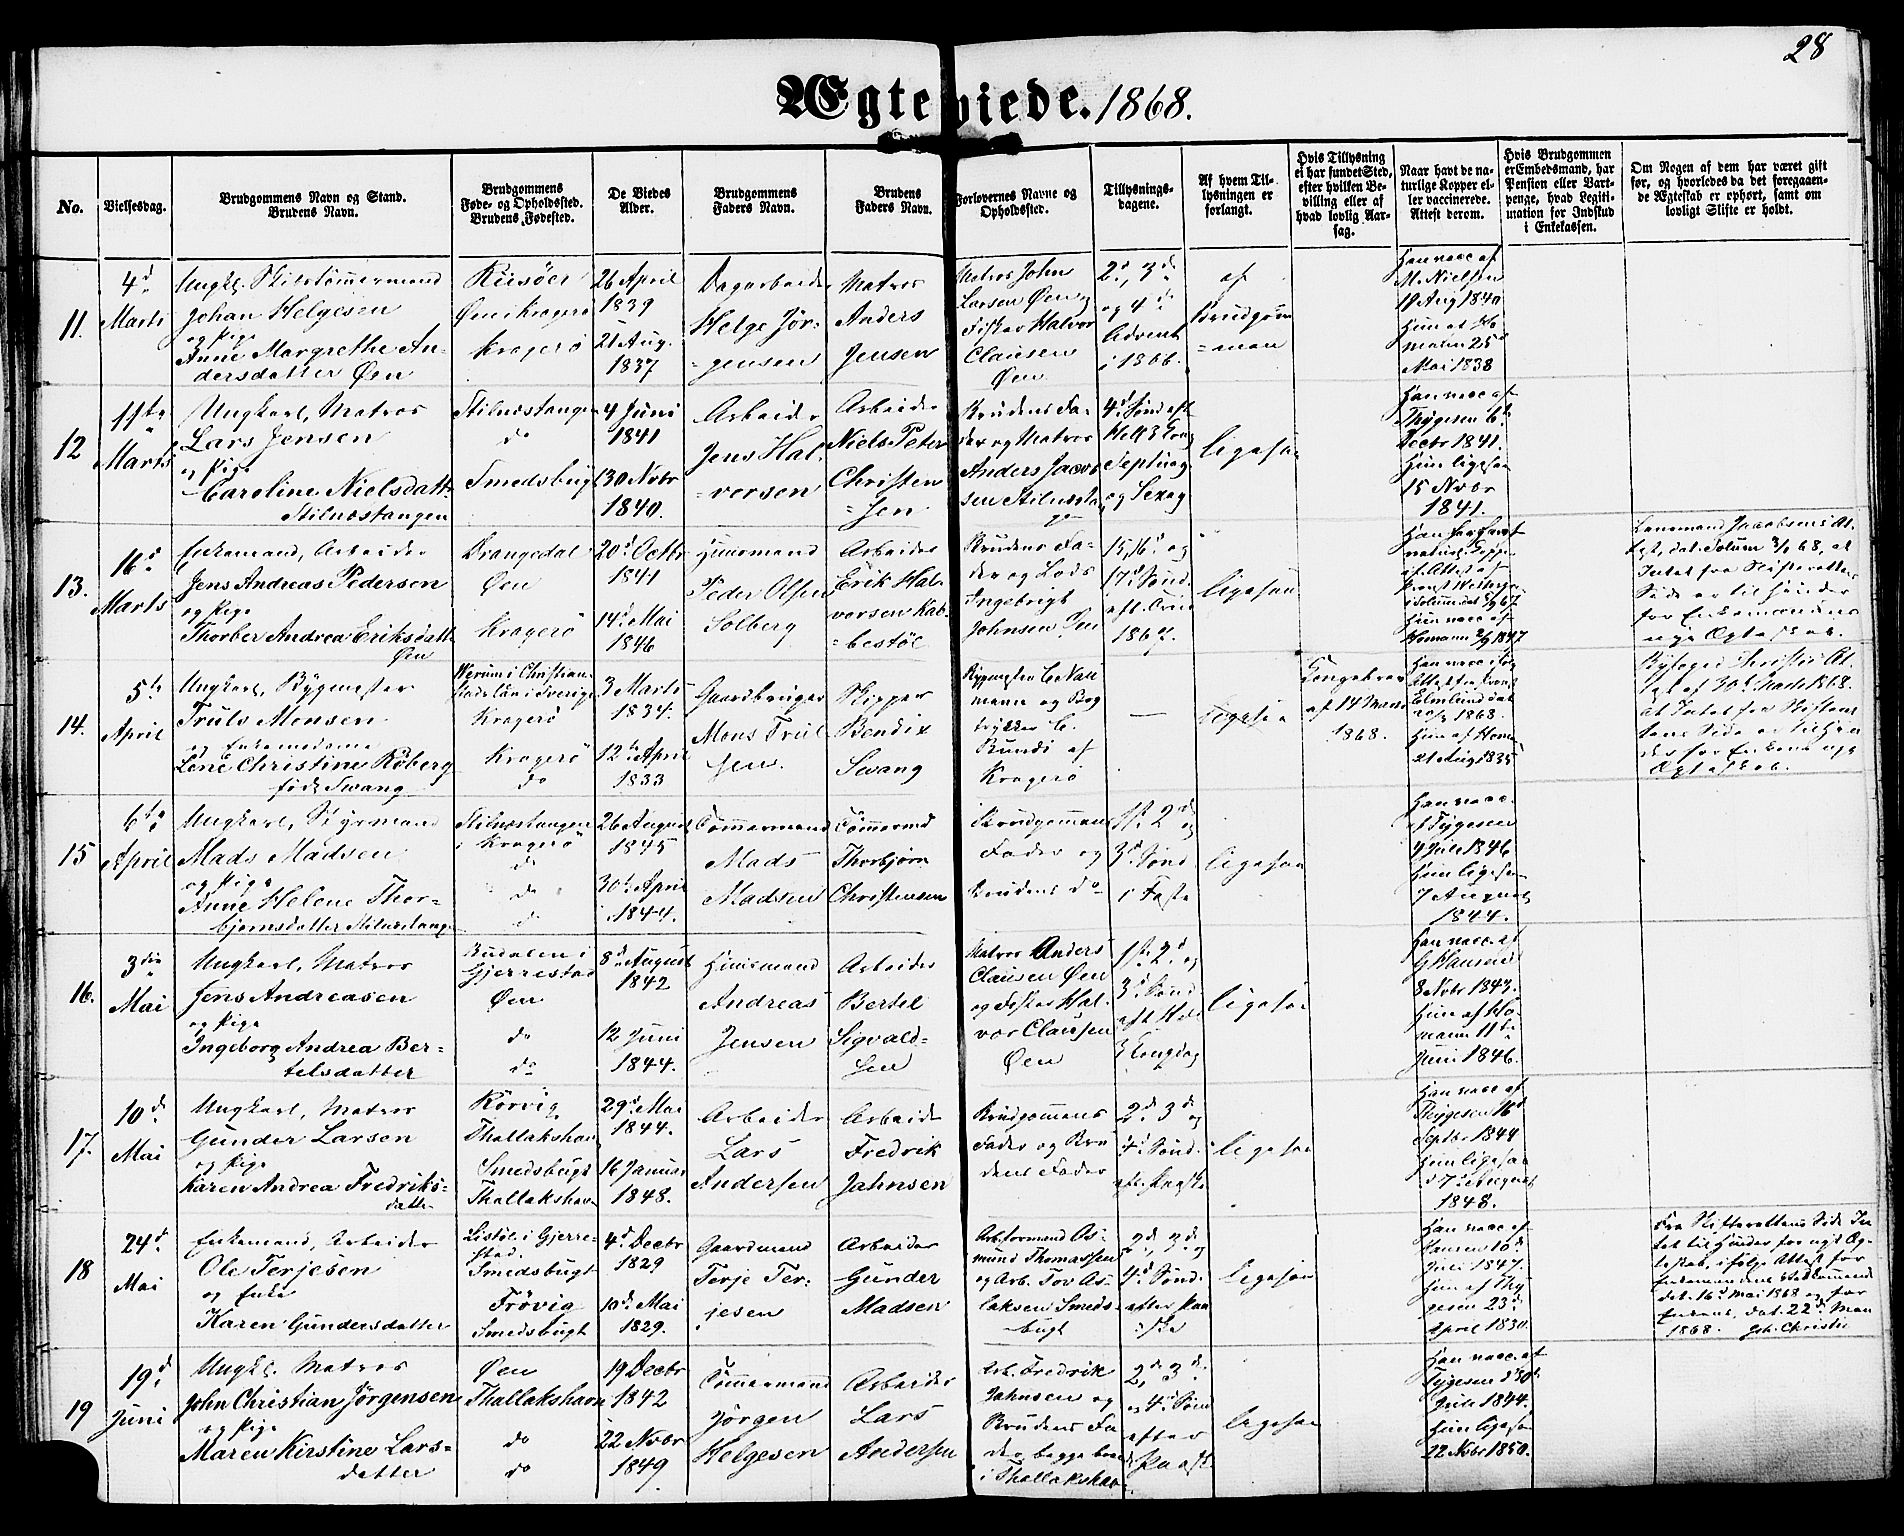 28
Ægteviede. 1868.
No.
Vielsesdag.
Brudgommens Navn og Stand.
Brudens Navn.
Brudgommens
Føde- og Opholdssted.
Brudens Fødested.
De Viedes
Alder.
Brudgommens
Faders Navn.
Brudens
Faders Navn.
Forlovernes Navne og
Opholdssted.
Tillysnings-
dagene.
Af hvem Til-
lysningen er
forlangt.
Hvis Tillysning
ei har fundet Sted,
efter hvilken Be-
villing eller af
hvad lovlig Aar-
sag.
Naar havt de na-
turlige Kopper el-
ler vaccinerede.
Attest derom.
Hvis Brudgommen
er Embedsmand, har
Pension eller Vart-
penge, hvad Legiti-
mation for Indskud
i Enkekassen.
Om Nogen af dem har været gift
før, og hvorledes da det foregaaen-
de Ægteskab er ophørt, samt om
lovligt Skifte er holdt.
11.
4d
Marts
Ungk. Skibstømmermand
Johan Helgesen
og Pige
Anne Margrethe An-
dersdatter Øen
Riisöer
Øen i Kragerø
Kragerö
26 April
1839
21 Aug.
1837
Dagarbeider
Helge Jör-
gensen
Matros
Anders
Jensen
Matros John
Larsen Øen og
Fisker Halvor
Clausen
Øen
2d, 3d
og 4d
Advent
i 1866.
af
Brudgom
=men
Han vacc af
M. Nielsen
19 Aug 1840
Hun af Ho
mann 25d
Mai 1838
12
11te
Marts
Ungkarl, Matros
Lars Jensen
og Pige
Caroline Nielsdatt
Stilnæstangen
Stilnæstangen
do
Smedsbugt
4 Juni
1841
30 Nvbr
1840.
Arbeider
Jens Hal-
vorsen
Arbeider
Niels Peter
Christen
=sen
Brudens Fa-
der og Matros
Anders Jacob
sen Stilnæsta
4d Sönd eft
Hell 3 Kong
Septuag
og Sexag
ligesaa
Han vacc af
Thygesen 6te
Decbr 1841.
Hun ligesaa
15 Nvbr
1841.
13.
16d
Marts
Enkemand, Arbeider
Jens Andreas Pedersen
og Pige
Thorber Andrea Eriksdatt
Øen
Drangedal
Øen
Kragerö
20d Octbr
1841
14d Mai
1846
Huusmand
Peder Olsen
Solberg
Arbeider
Erik Hal-
vorsen Kal-
=bestöl
Brudens Fa-
der og Lods
Ingebrigt
Johnsen Øen
15, 16d og
17d Sönd.
eft. Trin
1867.
ligesaa
Han har havt
naturl. Kopper
Hun vacc af
Homann 2/9 1847
Lensmand Jacobsens At-
test, dat. Solum 3/1 68, at
Intet fra Skifterettens
Side er til Hinder
for Enkemandens
nye Ægteskab.
14.
5te
April
Ungkarl, Bygmester
Truls Monsen
og Enkemadame
Lene Christine Röberg
födt Swang
Werum i Christian-
stads län i Sverige
Kragerö
Kragerö
do
3 Marts
1834.
12te April
1833
Gaardbruger
Mons Trul
sen.
Skipper
Bendix
Swang
Kragerö
—
ligesaa
Kongebrev
af 14 Marts
1868.
1868.
Hun af Homan
21 Aug 1835
Byfoged Christies At-
test af 30te Marts 1868.
at Intet fra Skiftere
tens Side er til Hin
der for Enkens nye
Ægteskab.
15
6te
April
Ungkarl, Styrmand
Mads Madsen
og Pige
Anne Helene Thor-
bjørnsdatter Stilnæstang
Stilnæstangen
i Kragerö
do
do
do
26 August
1845
30te April
1844.
Tömmermand
Mads
Madsen
Tömmermd
Thorbjørn
Christensen
Brudgommens
Fader og
Brudens do
1st, 2d
og
3d Sönd
i Faste
ligesaa
Han vacc.
af Tygesen
4 Juli 1846
Hun ligesaa
7 August
1844.
16.
3die
Mai
Ungkarl, Matros
Jens Andreasen
og Pige
Ingeborg Andrea Ber-
telsdatter
Budalen i
Gjerrestad
Øen
do
do
8d August
1842
12 Juni
1844.
Huusmand
Andreas
Jensen
Arbeider
Bertel
Sigvald-
sen
Matros Anders
Clausen Øen
og Fisker Hal-
vor Clausen
Øen
1st, 2d og
3d Sönd
eft Hel
3 Kongdag
ligesaa
Han vacc. af
G Hansen
8 Nvbr 1843.
Hun af Ho-
mann 11te
Juni 1846.
17.
10d
Mai
Ungkarl, Matros
Gunder Larsen
og Pige
Karen Andrea Fredriks=
datter
Rörvig
Thallakshavn
Smedsbugt
Thallakshavn
29d Mai
1844.
16 Januar
1848.
Arbeider
Lars
Andersen
Arbeider
Fredrik
Jahnsen
Brudgommens
Fader og Bru
dens Fader
2d, 3d
og
4d Sönd.
eft. Paaske
ligesaa
Han vacc af
Thygesen 16d
Septbr 1844
Hun ligesaa
d 7de August
1848.
18
24d
Mai
Enkemand, Arbeider
Ole Terjesen
og Enke
Karen Gundersdatter
Listöl i Gjerre-
stad.
Smedsbugt
Frövig
Smedsbugt
4d Decbr
1829
10d Mai
1829.
Gaardmand
Terje Ter-
jesen
Arbeider
Gunder
Madsen
Arbformand As-
mund Thomassen
og Arb. Tov As-
laksen Smeds-
bugt
2d, 3d og
4d Sönd.
efter Paa
ske
ligesaa
Han vacc af
Hansen 10d
Juli 1847.
Hun af Thy
gesen 23d
April 1830.
Fra Skifterettens Side In
tet til Hinder for nyt Æg-
teskab, ifølge Attest for
Enkemandens Vedkommend
dat. 16d Mai 1868 og for
Enkens, dat. 22d Mai
1868. Joh. Christie
19
19d
Juni
Ungk. Matros
John Christian Jørgensen
og Pige
Maren Kirstine Lars=
datter
Øen
Thallakshavn
do
do
19 Decbr
1842
22 Nvbr
1849
Tömmermand
Jörgen
Helgesen
Arbeider
Lars
Andersen
Arb. Fredrik
Jahnsen og
Brudens Fa
der begge bo
i Thallakshav
2d, 3d
og 4d Sönd
efter
Paaske
ligesaa
Han vacc. af
Tygesen d 30te
Juli 1844.
Hun ligesaa
22 Nvbr 1850.